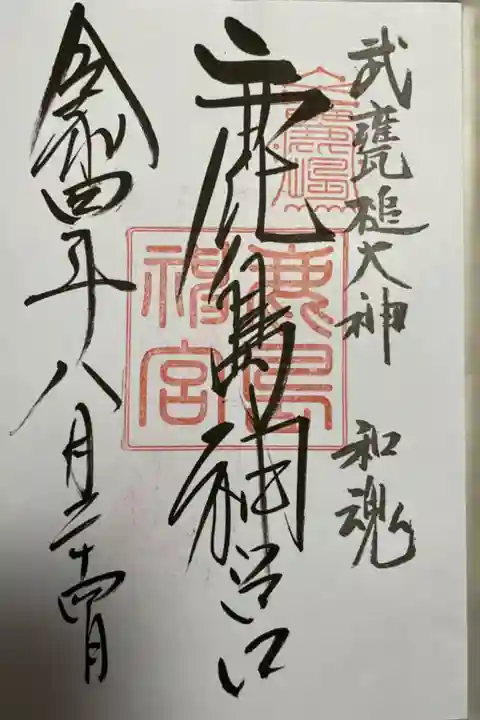 武甕槌大神 和魂
鹿島神宮
鹿島神宮
令和四年八月二十四日